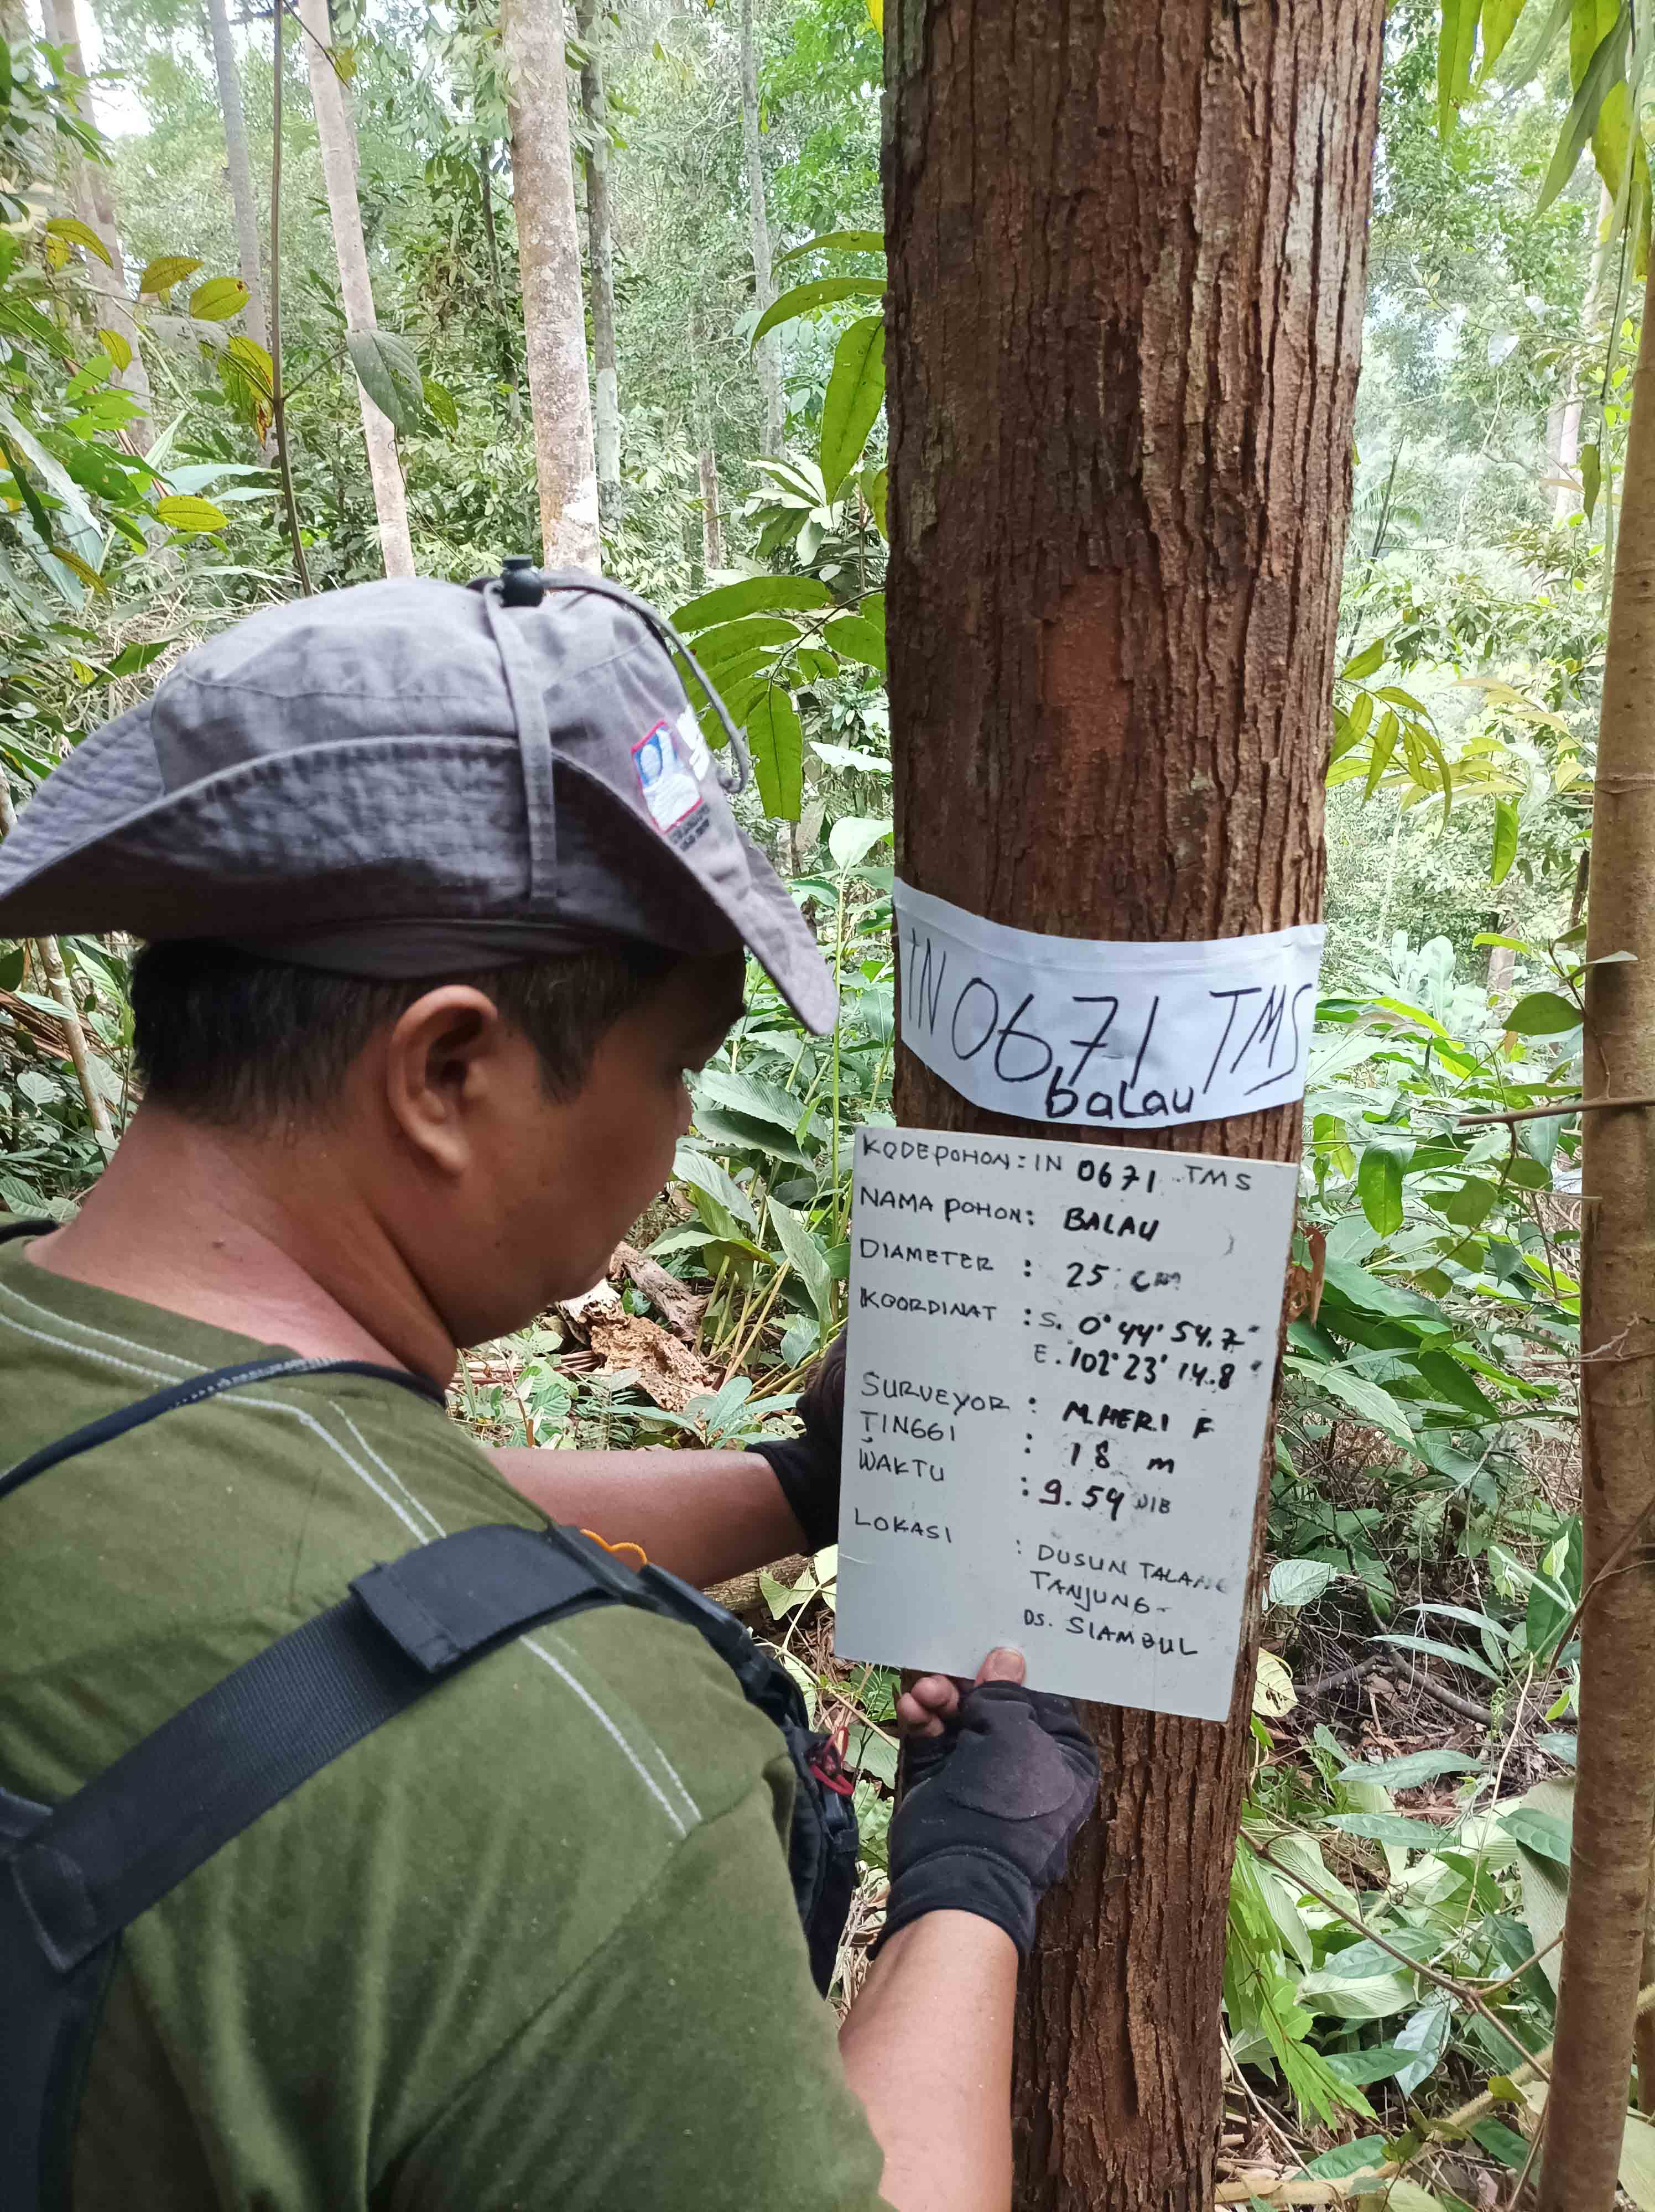 IN 0671 TMS
balau
KODEPOHON: IN 0671 TMS
NAMA POHON: BALAU
DIAMETER : 25 cm
KOORDINAT : S. 0° 44' 54.7"
E. 102° 23' 14.8"
SURVEYOR : M.HERI F
TINGGI : 18 m
WAKTU : 9.54 WIB
LOKASI : DUSUN TALANG
TANJUNG -
DS. SIAMBUL